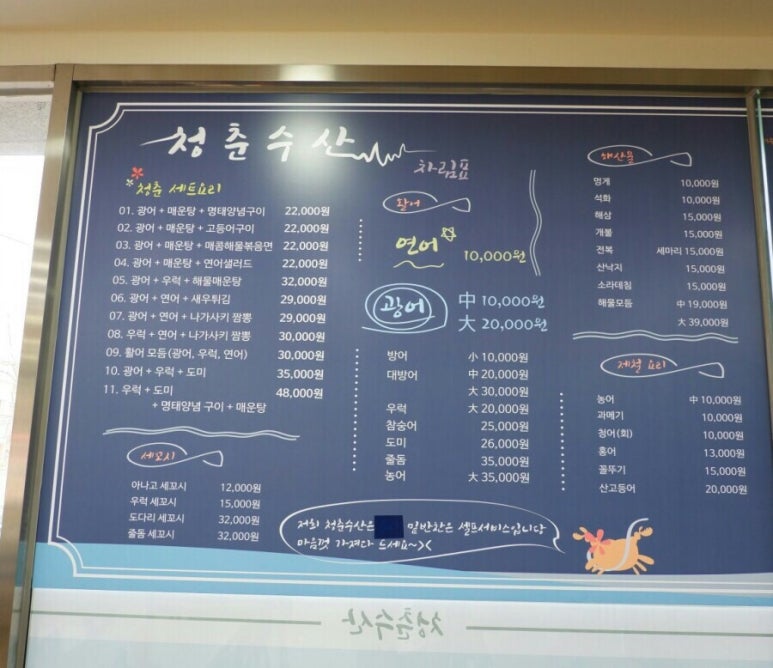 청춘수산
차림표
청춘 세트요리
01. 광어 + 매운탕 + 명태양념구이 22,000원
02. 광어 + 매운탕 + 고등어구이 22,000원
03. 광어 + 매운탕 + 매콤해물볶음면 22,000원
04. 광어 + 매운탕 + 연어샐러드 22,000원
05. 광어 + 우럭 + 해물매운탕 32,000원
06. 광어 + 연어 + 새우튀김 29,000원
07. 광어 + 연어 + 나가사키 짬뽕 29,000원
08. 우럭 + 연어 + 나가사키 짬뽕 30,000원
09. 활어 모듬(광어, 우럭, 연어) 30,000원
10. 광어 + 우럭 + 도미 35,000원
11. 우럭 + 도미 48,000원
+ 명태양념 구이 + 매운탕
세꼬시
아나고 세꼬시 12,000원
우럭 세꼬시 15,000원
도다리 세꼬시 32,000원
줄돔 세꼬시 32,000원
활어
연어 10,000원
광어 中 10,000원
大 20,000원
방어 小 10,000원
대방어 中 20,000원
大 30,000원
우럭 大 20,000원
참숭어 25,000원
도미 26,000원
줄돔 35,000원
농어 大 35,000원
해산물
멍게 10,000원
석화 10,000원
해삼 15,000원
개불 15,000원
전복 세마리 15,000원
산낙지 15,000원
소라데침 15,000원
해물모듬 中 19,000원
大 39,000원
제철 요리
농어 中 10,000원
과메기 10,000원
청어(회) 10,000원
홍어 13,000원
꼴뚜기 15,000원
산고등어 20,000원
저희 청춘수산은 밑반찬은 셀프서비스입니당
마음껏 가져다 드세요~><
청춘수산